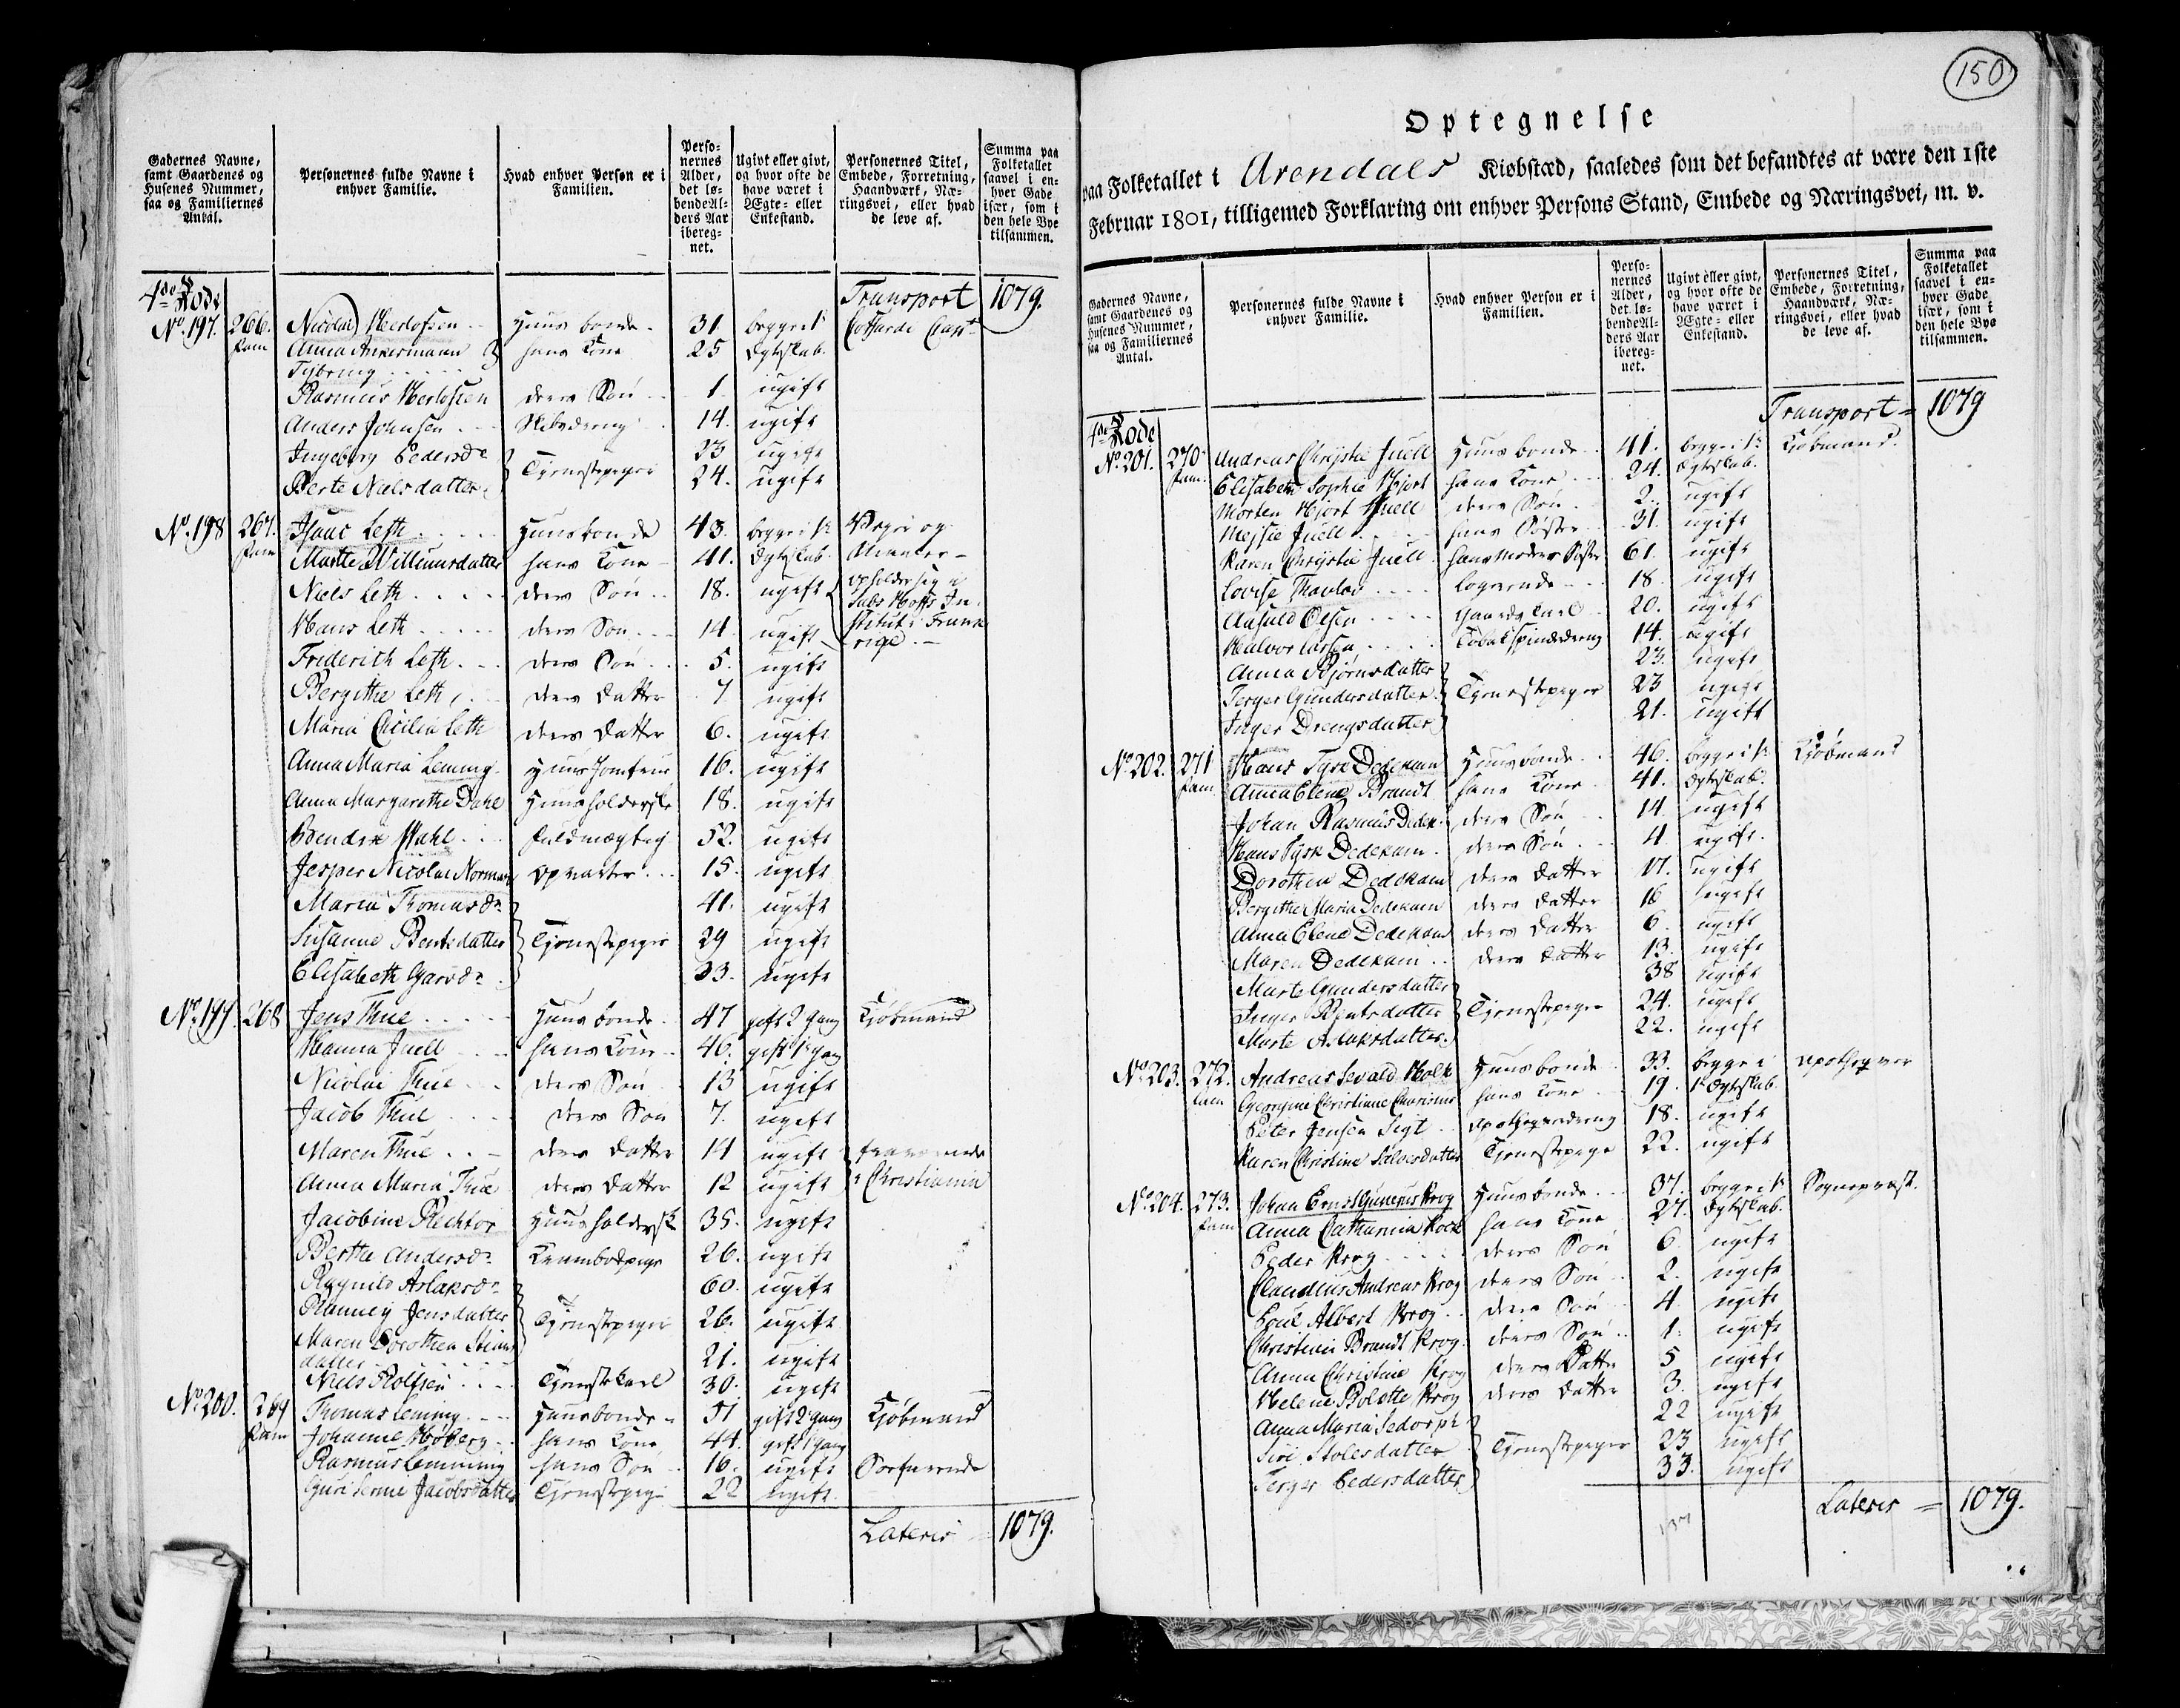 Gadernes Navne, samt Gaardenes og Husenes Nummer, saa og Familiernes Antal.
Personernes fulde Navne i enhver Familie.
Hvad enhver Person er i Familien.
Personernes Alder, det løbende Alders Aar iberegnet.
Ugivt eller givt, og hvor ofte de have været i Ægte- eller Enkestand.
Personernes Titel, Embede, Forretning, Haandværk, Næringsvei, eller hvad de leve af.
Summa paa Folketallet saavel i enhver Gade især, som i den hele Bye tilsammen.
4de Rode Transport 1079.
No. 197. 266. Nicolai Herlofsen Huusbonde 31. begge i 1te
fam Anna Ankermann hans Kone 25 Ægteskab.
Rasmus Herlofsen deres Søn 1. ugift
Anders Johnsen 14. ugift
Ingeborg Pedersdr 33 ugift
Berte Nielsdatter Tjenestepiger 24. ugift
No. 198 267. Isaac Leth Huusbonde 43. begge i 1te
fam Marte Willumsdatter hans Kone 41. Ægteskab.
Niels Leth deres Søn 18. ugift opholder sig i
Hans Leth deres Søn 14. ugift
Friderich Leth deres Søn 5. ugift
Bergithe Leth deres Datter 7 ugift
Maria Cicilia Leth deres Datter 6. ugift
Anna Maria Leming Huus Jomfrue 16. ugift
Anna Margarethe Dahl Huusholderske 18. ugift
Wahl fuldmægtig 52. ugift
Jesper Nicolai Norman opvarter 15. ugift
Maria Thomasdr 41. ugift
Susanne Bentsdatter Tjenestepiger 29 ugift
Elisabeth 33. ugift
No. 199. 268 Jens Thue Huusbonde 47 gift 2 gang Kjøbmand
Hanna Juell hans Kone 46. gift 1te gang
Nicolai Thue deres Søn 13 ugift
Jacob Thue deres Søn 7. ugift
Maren Thue deres Datter 14 ugift fraværende
Anna Maria Thue deres Datter 12 ugift i Christiania
Jacobine Rechtor Huusholdersk 35. ugift
Berthe Andersdr Krambodpige 26. ugift
Ragnild Aslaksdr 60. ugift
Jensdatter Tjenestepiger 26. ugift
Maren Dorothea
datter 21. ugift
Niels Rolfsen Tjenestekarl 30. ugift
No. 200. 269 Thomas Leming Huusbonde 51 gift 2 gang Kjøbmand
fam Johanne Høberg hans Kone 44. gift 1 gang
Rasmus Lemming hans Søn 16. ugift Søefarende
Guri Jacobsdatter Tjenestepige 22 ugift
Lateris 1079.
150
Optegnelse
paa Folketallet i Arendals Kiøbstæd, saaledes som det befandtes at være den 1ste
Februar 1801, tilligemed Forklaring om enhver Persons Stand, Embede og Næringsvei, m. v.
Gadernes Navne, samt Gaardenes og Husenes Nummer, saa og Familiernes Antal.
Personernes fulde Navne i enhver Familie.
Hvad enhver Person er i Familien.
Personernes Alder, det løbende Alders Aar iberegnet.
Ugivt eller givt, og hvor ofte de have været i Ægte- eller Enkestand.
Personernes Titel, Embede, Forretning, Haandværk, Næringsvei, eller hvad de leve af.
Summa paa Folketallet saavel i enhver Gade især, som i den hele Bye tilsammen.
4de Rode Transport = 1079
No. 201. 270. Andreas Christie Juell Huusbonde 41. begge i 1te Kjøbmand.
fam. Elisabeth Sophie Hjort hans Kone 24. Ægteskab.
Morten Hjort Juell deres Søn 2. ugift
Juell hans Søster 31. ugift
Karen Christie Juell hans Moders Søster 61. ugift
Lovise Thaulov logerende 18. ugift
Olsen Gaardskarl 20. ugift
Halvor Larsen Tobakspinderdreng 14. ugift
Anna Bjørnsdatter 23. ugift
Terger Gundersdatter Tjenestepiger 23 ugift
Inger Drengsdatter 21. ugift
No. 202. 271 Hans Tysk Dedekam Huusbonde 46. begge i 1te Kjøbmand
fam Anna Elena Brandt hans Kone 41. Ægteskab.
Johan Rasmus Dedek. deres Søn 14. ugift
Hans Tysk Dedekam deres Søn 4. ugift.
Dorothea Dedekam deres Datter 17. ugift
Bergithe Maria Dedekam deres Datter 16 ugift
Anna Elena Dedekam deres Datter 6. ugift
Maren Dedekam deres Datter 13. ugift
Marte Gundersdatter 38 ugift
Inger Bentsdatter Tjenestepiger 24. ugift
Marte Aslaksdatter 22. ugift
No. 203. 272. Andreas Sevald Holk Huusbonde 33. begge i Apotheqver
fam Georgine Christiane hans Kone 19. 1te Ægteskab.
Peter Jensen Apotheqverdreng 18. ugift
Karen Christine Tjenestepige 22. ugift
No. 204. 273. Johan Ernst Gunerus Krog Huusbonde 37. begge i 1te Sognepræst.
fam Anna Catharina Kock hans Kone 27. Ægteskab.
Peder Krog deres Søn 6. ugift
Claudius Andreas Krog deres Søn 2. ugift
Poul Albert Krog deres Søn 4 ugift
Christian Brandt Krog deres Søn 1. ugift
Anna Christine Krog deres Datter 5 ugift
Helene Bolette Krog deres Datter 3. ugift
Anna Maria 22 ugift
Siri Stolesdatter Tjenestepiger 23 ugift
Terger Pedersdatter 33. ugift
Lateris = 1079.